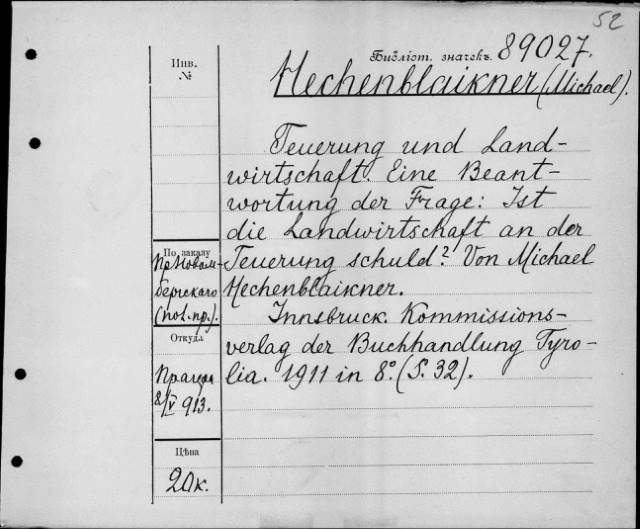 52
Инв. №
Библіот. значекъ. 89027.
Hechenblaikner (Michael).
Teuerung und Land-
wirtschaft. Eine Beant-
wortung der Frage: Ist
die Landwirtschaft an der
Teuerung schuld? Von Michael
Hechenblaikner.
Innsbruck. Kommissions-
verlag der Buchhandlung Tyro-
lia. 1911 in 8º. (S. 32).
По заказу
бергскаго
Откуда
913.
Цѣна
20к.